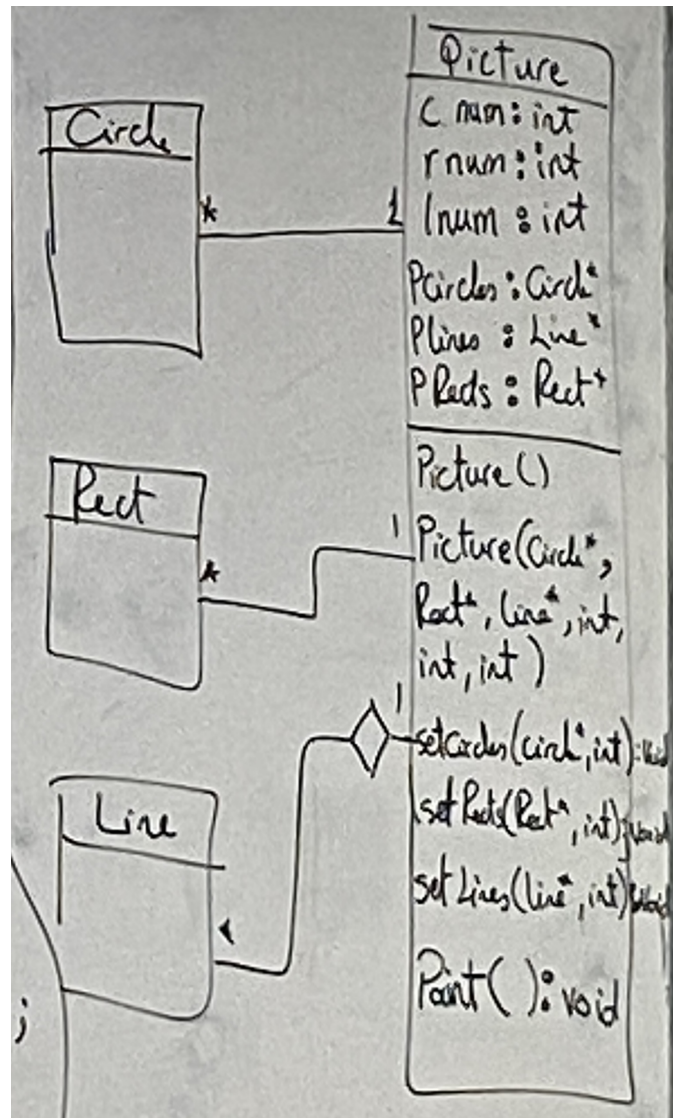 Circle
*
Rect
*
Line
*
Picture
c num : int
r num : int
lnum : int
1
PCircles : Circle*
Plines : Line*
PRects : Rect*
Picture()
1
Picture(Circle*,
Rect*, Line*, int,
int, int)
1
setCircles(circle*, int) : void
setRects(Rect*, int) : void
setLines(line*, int) : void
Paint() : void
;